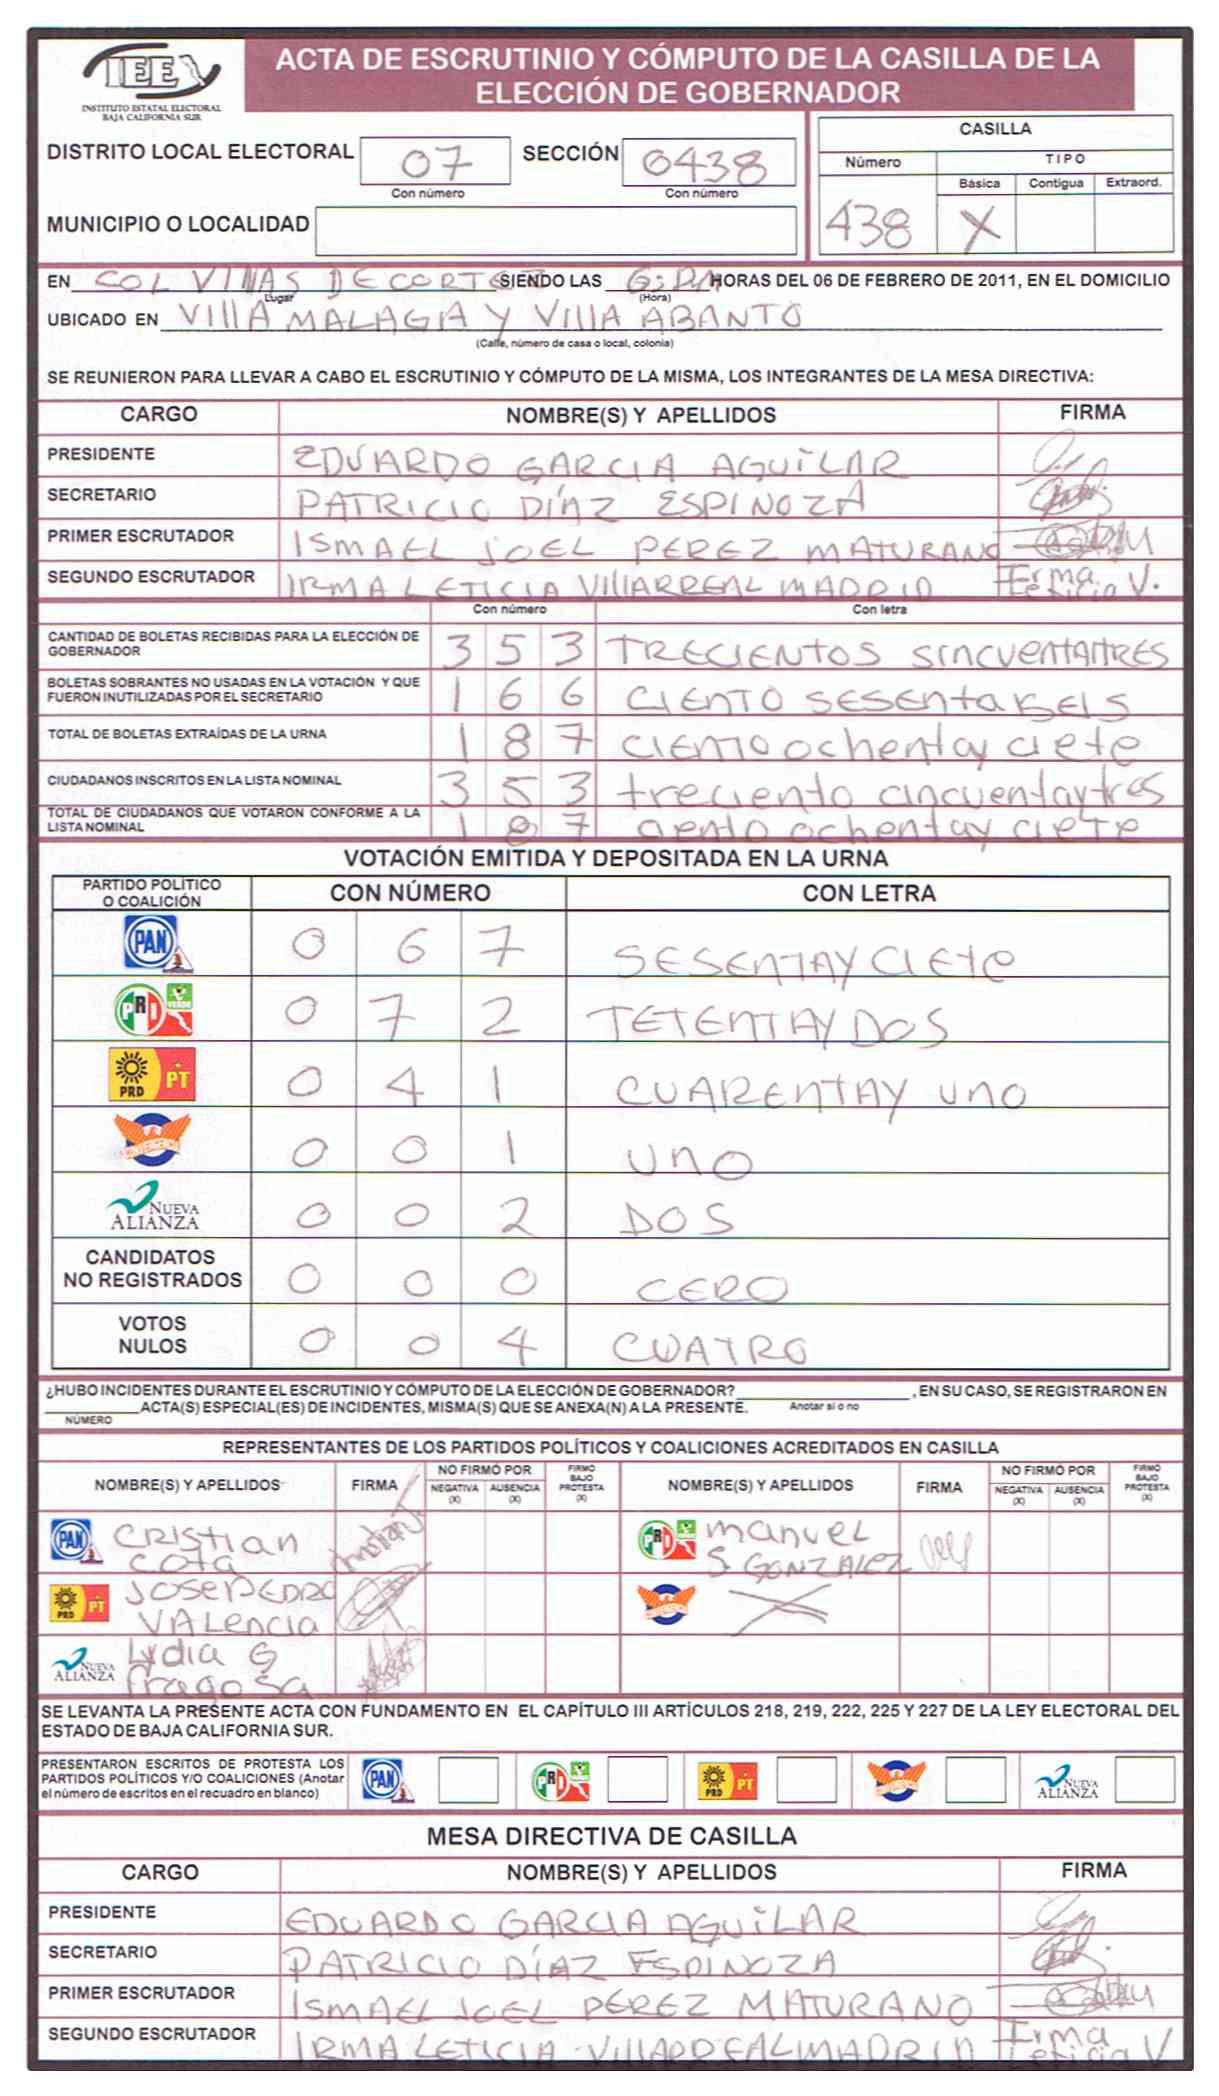 IEE
INSTITUTO ESTATAL ELECTORAL
BAJA CALIFORNIA SUR
ACTA DE ESCRUTINIO Y CÓMPUTO DE LA CASILLA DE LA
ELECCIÓN DE GOBERNADOR
DISTRITO LOCAL ELECTORAL 07 SECCIÓN 0438
Con número Con número
MUNICIPIO O LOCALIDAD
CASILLA
Número TIPO
Básica Contigua Extraord.
438 X
EN COL VIÑAS DE CORTEZ SIENDO LAS HORAS DEL 06 DE FEBRERO DE 2011, EN EL DOMICILIO
Lugar (Hora)
UBICADO EN VIllA MALAGA Y VIllA ABANTO
(Calle, número de casa o local, colonia)
SE REUNIERON PARA LLEVAR A CABO EL ESCRUTINIO Y CÓMPUTO DE LA MISMA, LOS INTEGRANTES DE LA MESA DIRECTIVA:
CARGO NOMBRE(S) Y APELLIDOS FIRMA
PRESIDENTE EDUARDO GARCIA AGUILAR
SECRETARIO PATRICIO DÍAZ ESPINOZA
PRIMER ESCRUTADOR ISMAEL JOEL PEREZ MATURANO
SEGUNDO ESCRUTADOR IRMA LETICIA VIllARREAL MADRID Irma Leticia V.
Con número Con letra
CANTIDAD DE BOLETAS RECIBIDAS PARA LA ELECCIÓN DE
GOBERNADOR 3 5 3 TRECIENTOS SINCUENTAITRES
BOLETAS SOBRANTES NO USADAS EN LA VOTACIÓN Y QUE
FUERON INUTILIZADAS POR EL SECRETARIO 1 6 6 CIENTO SESENTAISEIS
TOTAL DE BOLETAS EXTRAÍDAS DE LA URNA 1 8 7 CIENTO ochentay ciete
CIUDADANOS INSCRITOS EN LA LISTA NOMINAL 3 5 3 treciento cincuentaytres
TOTAL DE CIUDADANOS QUE VOTARON CONFORME A LA
LISTA NOMINAL 1 8 7 ciento ochentay ciete
VOTACIÓN EMITIDA Y DEPOSITADA EN LA URNA
PARTIDO POLÍTICO
O COALICIÓN CON NÚMERO CON LETRA
PAN 0 6 7 SESENTAY CIETE
PRI VERDE 0 7 2 TETENTAY DOS
PRD PT 0 4 1 CUARENTAY UNO
CONVERGENCIA 0 0 1 UNO
NUEVA
ALIANZA 0 0 2 DOS
CANDIDATOS
NO REGISTRADOS 0 0 0 CERO
VOTOS
NULOS 0 0 4 CUATRO
¿HUBO INCIDENTES DURANTE EL ESCRUTINIO Y CÓMPUTO DE LA ELECCIÓN DE GOBERNADOR? , EN SU CASO, SE REGISTRARON EN
ACTA(S) ESPECIAL(ES) DE INCIDENTES, MISMA(S) QUE SE ANEXA(N) A LA PRESENTE. Anotar si o no
NÚMERO
REPRESENTANTES DE LOS PARTIDOS POLÍTICOS Y COALICIONES ACREDITADOS EN CASILLA
NOMBRE(S) Y APELLIDOS FIRMA NO FIRMÓ POR FIRMÓ BAJO PROTESTA (X) NOMBRE(S) Y APELLIDOS FIRMA NO FIRMÓ POR FIRMÓ BAJO PROTESTA (X)
NEGATIVA (X) AUSENCIA (X) NEGATIVA (X) AUSENCIA (X)
PAN Cristian PRI VERDE Manuel
Cota S. GONZALEZ
PRD PT JOSE PEDRO CONVERGENCIA
VALencia
NUEVA ALIANZA Lydia G
Fragosa
SE LEVANTA LA PRESENTE ACTA CON FUNDAMENTO EN EL CAPÍTULO III ARTÍCULOS 218, 219, 222, 225 Y 227 DE LA LEY ELECTORAL DEL
ESTADO DE BAJA CALIFORNIA SUR.
PRESENTARON ESCRITOS DE PROTESTA LOS
PARTIDOS POLÍTICOS Y/O COALICIONES (Anotar
el número de escritos en el recuadro en blanco)
PAN PRI VERDE PRD PT CONVERGENCIA NUEVA ALIANZA
MESA DIRECTIVA DE CASILLA
CARGO NOMBRE(S) Y APELLIDOS FIRMA
PRESIDENTE EDUARDO GARCIA AGUILAR
SECRETARIO PATRICIO DÍAZ ESPINOZA
PRIMER ESCRUTADOR ISMAEL JOEL PEREZ MATURANO
SEGUNDO ESCRUTADOR IRMA LETICIA VIllARREAL MADRID Irma Leticia V